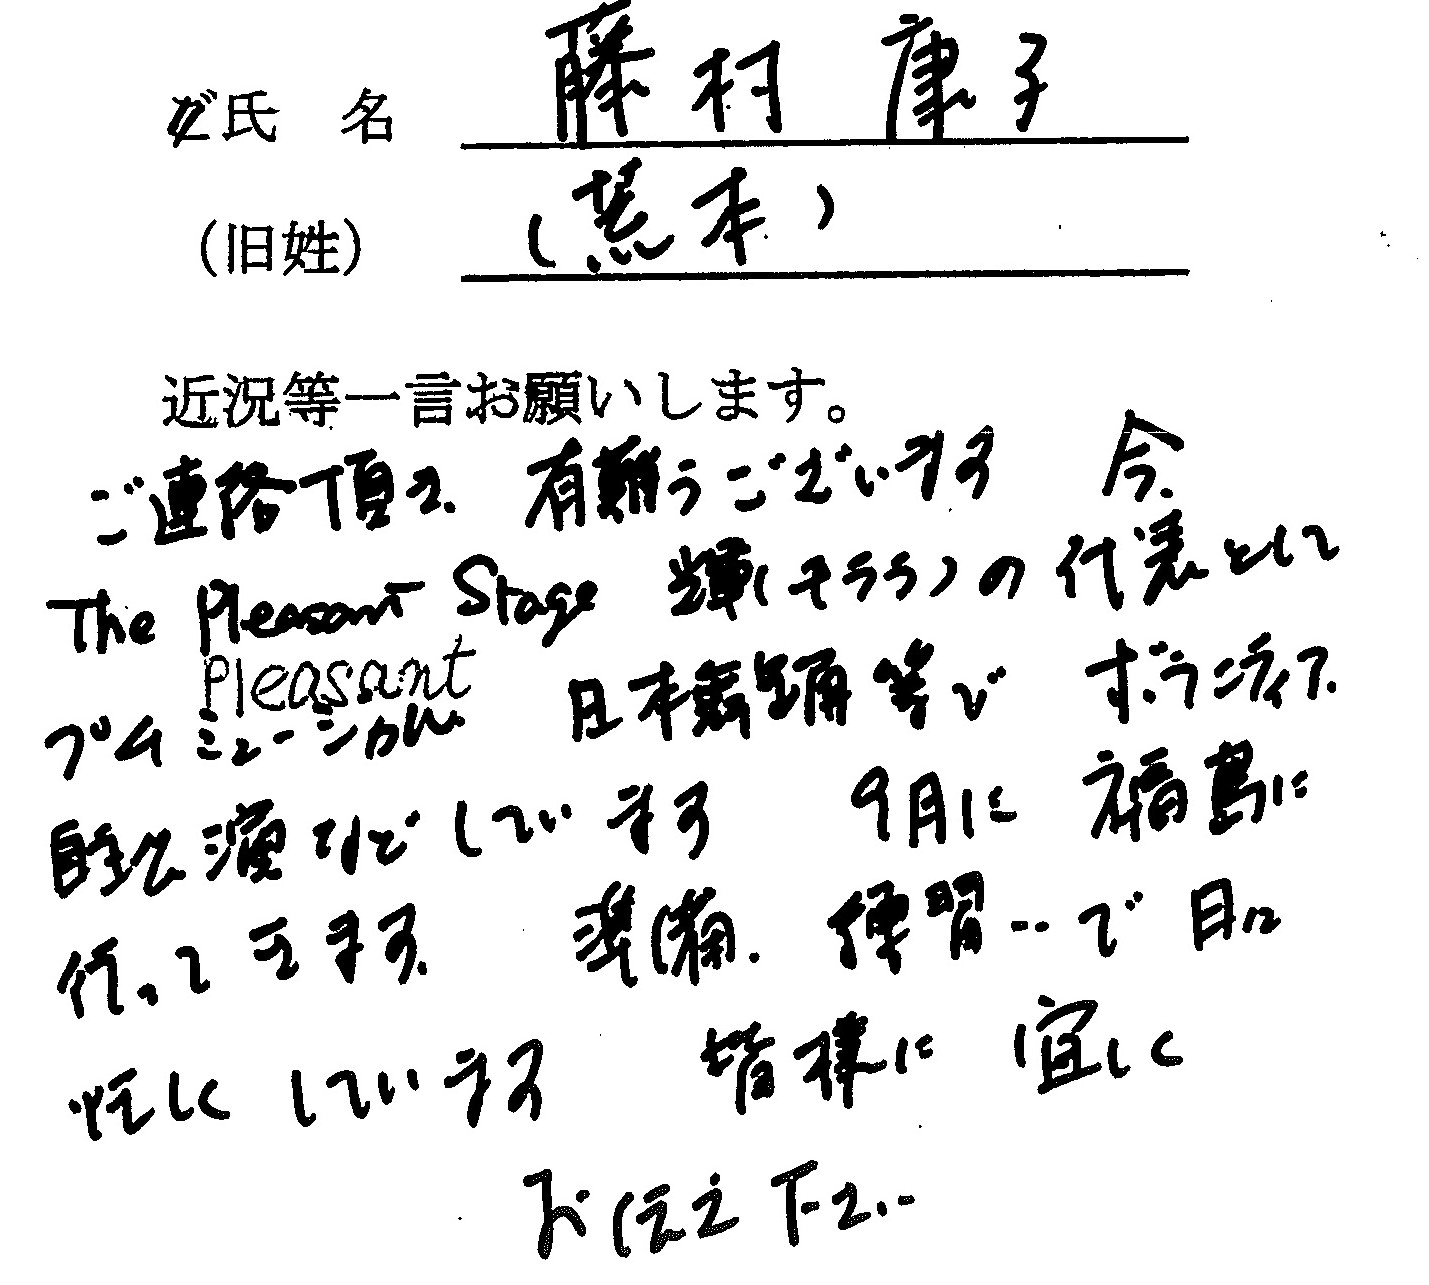 ご氏 名 藤村 康子
(旧姓)
近況等一言お願いします。
ご連絡頂き、有難うございます 今、
The Pleasant Stage 輝(キララ)の代表として
Pleasant
プチミュージカル、日本舞踊等で ボランティア、
自主公演などしています 9月に 福島に
行ってきます、 準備、練習‥で 日々
忙しくしています 皆様に 宜しく
お伝え下さい